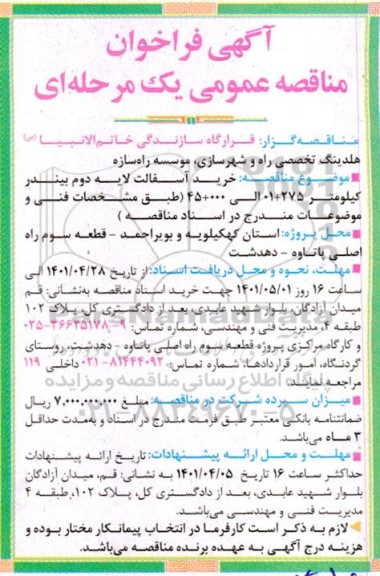 آگهی فراخوان
مناقصه عمومی یک مرحله‌ای
مناقصه‌گزار: قرارگاه سازندگی خاتم‌الانبیا (ص)
هلدینگ تخصصی راه و شهرسازی، موسسه راه‌سازه
موضوع مناقصه: خرید آسفالت لایه دوم بیندر
کیلومتر ۲۷۵+۰۱ الی ۰۰۰+۴۵ (طبق مشخصات فنی و
موضوعات مندرج در اسناد مناقصه)
محل پروژه: استان کهکیلویه و بویراحمد - قطعه سوم راه
اصلی پاتاوه - دهدشت
مهلت، نحوه و محل دریافت اسناد: از تاریخ ۱۴۰۱/۰۴/۲۸ الی
ساعت ۱۶ روز ۱۴۰۱/۰۵/۰۱ جهت خرید اسناد مناقصه به‌نشانی: قم
میدان آزادگان، بلوار شهید عابدی، بعد از دادگستری کل، پلاک ۱۰۲
طبقه ۴، مدیریت فنی و مهندسی، شماره تماس: ۹-۳۶۶۳۵۱۷۸-۰۲۵
و کارگاه مرکزی پروژه قطعه سوم راه اصلی پاتاوه - دهدشت، روستای
گردنگاه، امور قراردادها، شماره تماس: ۸۱۴۴۴۰۹۲-۰۲۱ داخلی ۱۱۹
مراجعه نمایند.
پایگاه اطلاع رسانی مناقصه و مزایده
میزان سپرده شرکت در مناقصه: مبلغ ۷,۰۰۰,۰۰۰,۰۰۰ ریال
۰۲۱-۸۸۳۴۹۶۷۰-۵
ضمانتنامه بانکی معتبر طبق فرمت مندرج در اسناد و به‌مدت حداقل
۳ ماه می‌باشد.
مهلت و محل ارائه پیشنهادات: تاریخ ارائه پیشنهادات
حداکثر ساعت ۱۶ تاریخ ۱۴۰۱/۰۴/۰۵ به نشانی: قم، میدان آزادگان
بلوار شهید عابدی، بعد از دادگستری کل، پلاک ۱۰۲، طبقه ۴
مدیریت فنی و مهندسی می‌باشد.
لازم به ذکر است کارفرما در انتخاب پیمانکار مختار بوده و
هزینه درج آگهی به عهده برنده مناقصه می‌باشد.